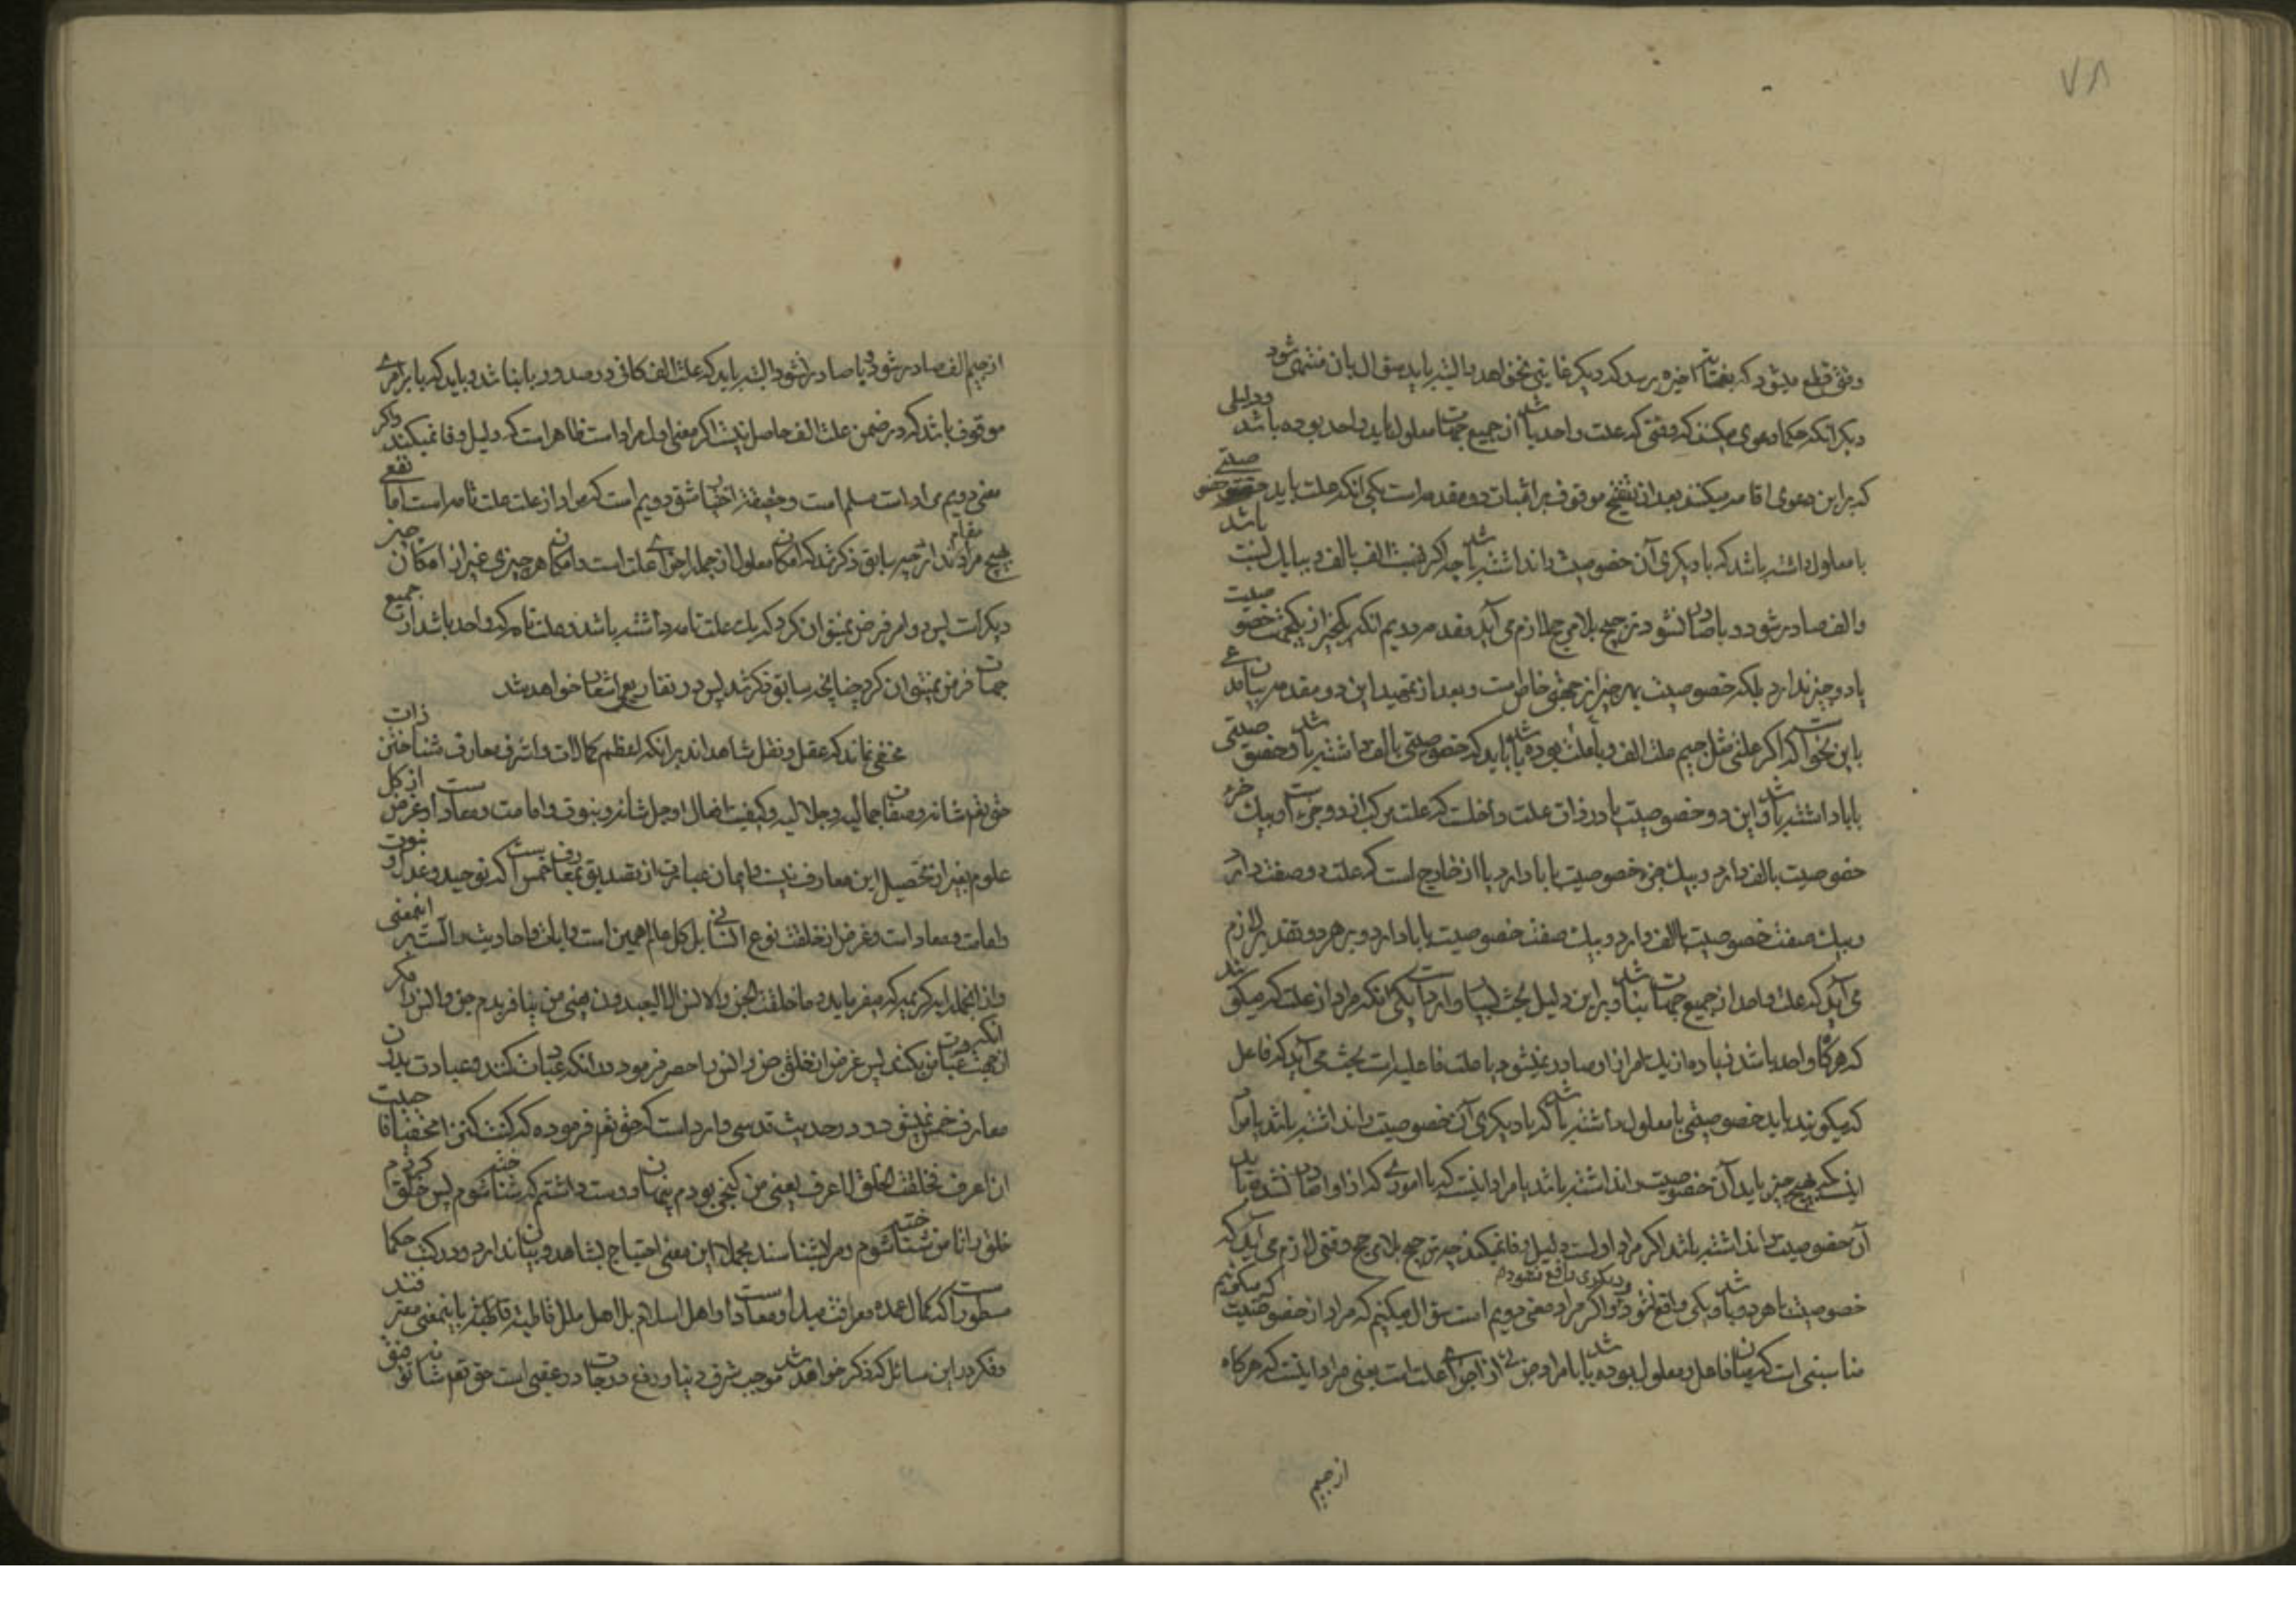 ٧٨
وقتی قطع میشود که بغایت اخیره برسد که دیگر غایتی نخواهد و البته باید سؤال بان منتهی شود
دیگر انکه حکما دعوی میکنند که وقتی که علت واحد باشد از جمیع جهات معلول باید واحد بوده باشد و دلیلی
که براین دعوی اقامه میکنند بعد از تنقیح موقوف بر اثبات دو مقدمه است یکی انکه علت باید خصوصیتی
با معلول داشته باشد که با دیگری آن خصوصیت را نداشته باشد چه اگر نسبت الف بالف و ببا یک نسبت باشد
و الف صادر شود و با صادر نشود ترجیح بلا مرجح لازم می آید مقدمه دویم انکه یکچیز از یکجهت خصوصیت
با دو چیز ندارد بلکه خصوصیت بهر چیز از جهتی خاص است و بعد از تمهید این دو مقدمه بیان مدعی
باین نحو است که اگر علتی مثل جیم علت الف و با علت بوده باشد باید که خصوصیتی بالف داشته باشد و خصوصیتی
ببا داشته باشد و این دو خصوصیت یا در ذات علت داخلست که علت مرکب از دو جزء است و بیک جزء
خصوصیت بالف دارد و بیک جزء خصوصیت ببا دارد یا از خارج است که علت دو صفت دارد
و بیک صفت خصوصیت بالف دارد و بیک صفت خصوصیت ببا دارد و بر هر دو تقدیر لازم
می آید که علت واحد از جمیع جهات نباشد و براین دلیل بحث بسیار وارد است یکی انکه مراد از علت که میگویند
که هر گاه واحد باشد زیاده از یک امر از او صادر نمیشود یا علت فاعلیه است بحث می آید که فاعل
که میگویند باید خصوصیتی با معلول داشته باشد که با دیگری آن خصوصیت را نداشته باشد یا مراد
اینست که بهیچ چیز باید آن خصوصیت را نداشته باشد یا مراد اینست که با اموری که از او صادر نشده باید
آن خصوصیت را نداشته باشد اگر مراد اولست دلیل وفا نمیکند چه ترجیح بلا مرجح وقتی لازم می آید که
خصوصیت با هر دو باشد و یکی واقع شود و دیگری واقع نشود و اگر مراد معنی دویم است سؤال میکنیم که مراد از خصوصیت که میگوئیم
مناسبتی است که میان فاعل و معلول بوده باشد یا مراد جزئی از اجزای علت است یعنی مراد اینست که هر گاه
از جیم
از جیم الف صادر شود و با صادر نشود البته باید که علت الف کافی در صدور با نباشد و باید که با بر امری
موقوف باشد که در ضمن علت الف حاصل نیست اگر معنی اول مراد است ظاهر است که دلیل وفا نمیکند و اگر
معنی دویم مراد است مسلم است و حقیقة اختیار شق دویم است که مراد از علت علت تامه است اما نفعی
هیچ مراد ندارد چه سابق ذکر شد که امکان معلول از جمله اجزای علت است و امکان هر چیزی غیر از امکان چیز
دیگر است پس دو امر فرض نمیتوان کرد که یک علت تامه داشته باشد و علت تامه که واحد باشد از جمیع
جهات فرض نمیتوان کرد چنانچه سابق ذکر شد پس در تفاریع اشعار خواهد شد
مخفی نماند که عقل و نقل شاهدند بر انکه اعظم کمالات و اشرف معارف شناختن ذات
حق تعم شانه و صفات جمالیه و جلالیه و کیفیت افعال او جل شانه و نبوت و امامت و معاد است و غرض از کل
علوم بغیر از تحصیل این معارف نیست و ایمان عبارت از تصدیق بمعارف خمس است که توحید و عدل و نبوت
و امامت و معاد است و غرض از خلقت نوع انسانی بل کل عالم همین است و ایات و احادیث دالست بر اینمعنی
و از انجمله ایه کریمه که میفرماید و ما خلقت الجن و الانس الا لیعبدون یعنی من نیافریدم جن و انس را مگر
از جهت انکه عبادت من بکنند پس غرض از خلق جن و انس را حصر فرموده در انکه عبادت کنند و عبادت بدون
معارف خمس نمیشود و در حدیث قدسی وارد است که حق تعم فرموده که کنت کنزا مخفیا فاحببت
ان اعرف فخلقت الخلق لاعرف یعنی من گنجی بودم پنهان و دوست داشتم که شناخته شوم پس خلق کردم
خلق را تا من شناخته شوم و مرا بشناسند مجملا این معنی احتیاج بشاهد و بیان ندارد و در کتب حکما
مسطور است که کمال اعمده معرفت مبدا و معاد است و اهل اسلام بل اهل ملل قاطبة باینمعنی معترفند
و فکر در این مسائل که ذکر خواهد شد موجب شرف دنیا و رفع درجات در عقبی است حق تعم شانه توفیق